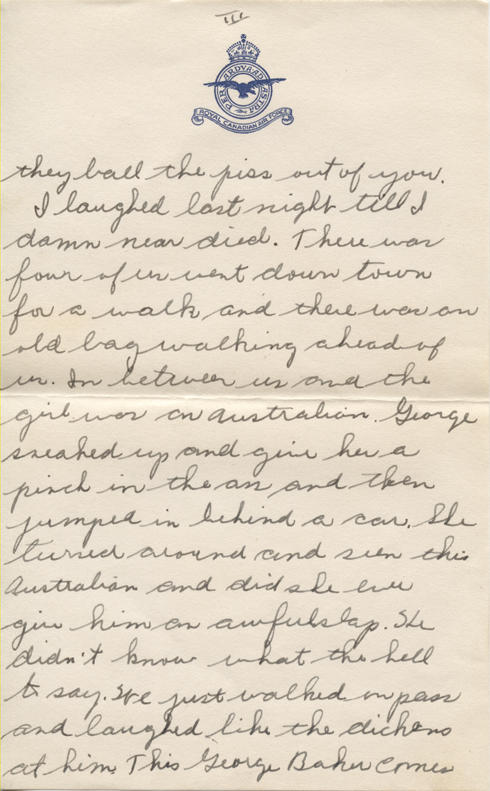 III
PER ARDUA AD ASTRA
ROYAL CANADIAN AIR FORCE
they ball the piss out of you.
I laughed last night till I
damn near died. There was
four of us went down town
for a walk and there was an
old bag walking ahead of
us. In between us and the
girl was an Australian. George
sneaked up and give her a
pinch in the ass and then
jumped in behind a car. She
turned around and seen this
Australian and did she ever
give him an awful slap. He
didn't know what the hell
to say. We just walked on pass
and laughed like the dickens
at him. This George Baker comes